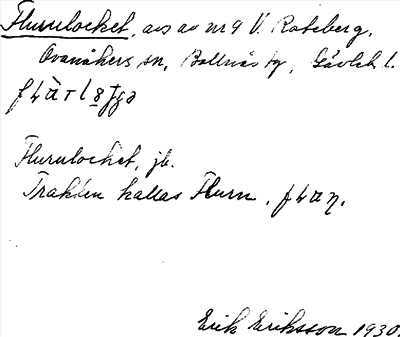 Flurulocket, avs av nr 9 V. Roteberg,
Ovanåkers sn, Bollnäs tg, Gävleb. l.
Flurulocket, jb.
Trakten kallas Flurn,
Erik Eriksson 1930.